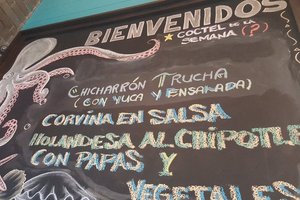 BIENVENIDOS
★ COCTEL DE LA
SEMANA (?)
CHICHARRÓN TRUCHA
(CON YUCA Y ENSALADA)
CORVINA EN SALSA
HOLANDESA AL CHIPOTLE
CON PAPAS Y
VEGETALES